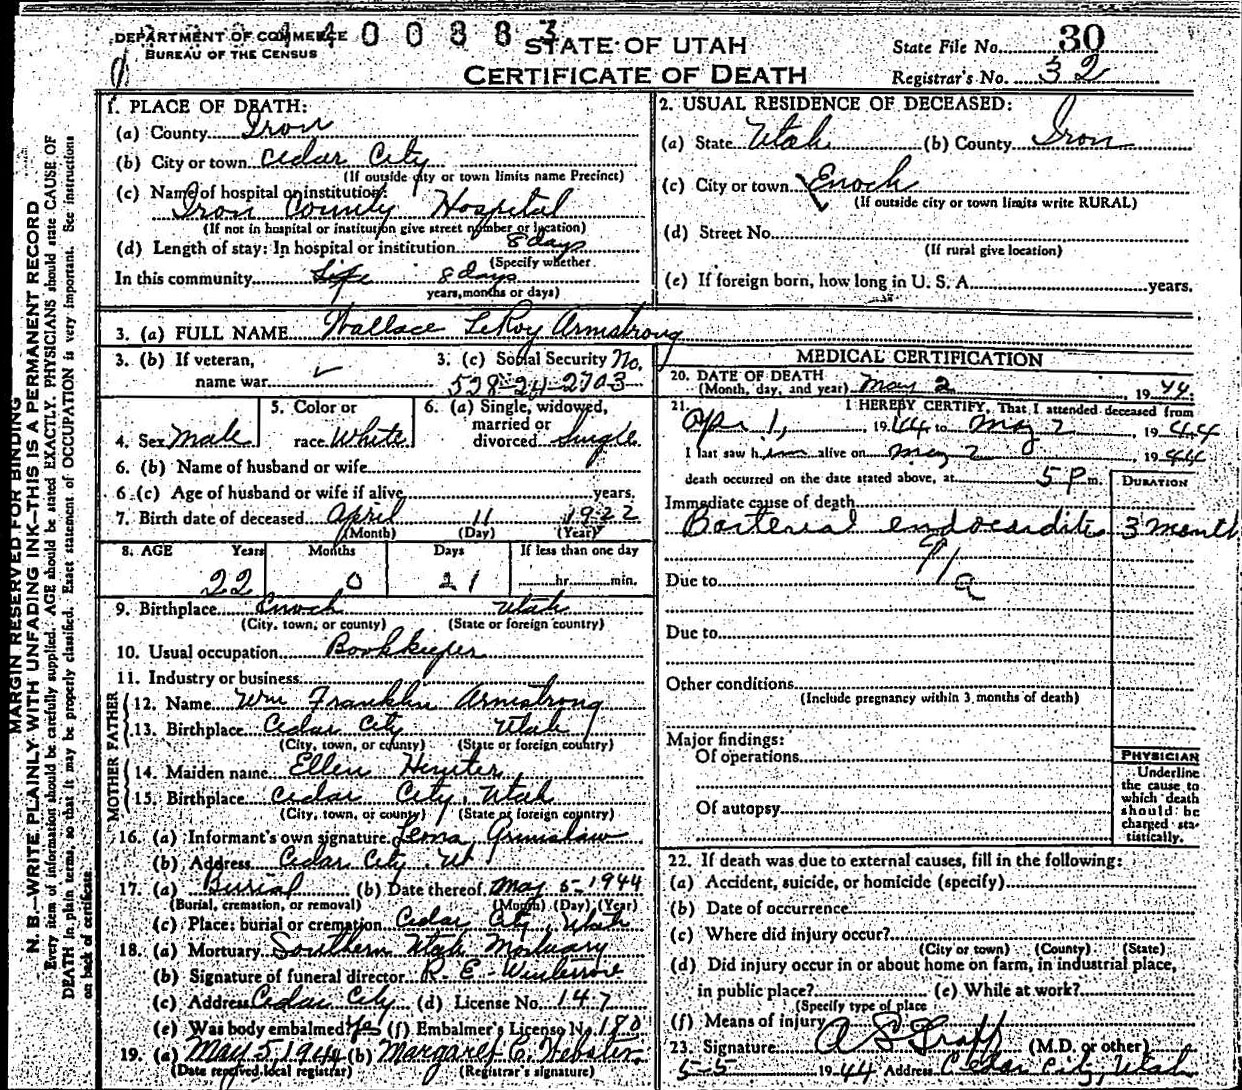 DEPARTMENT OF COMMERCE
BUREAU OF THE CENSUS
STATE OF UTAH
CERTIFICATE OF DEATH
State File No. 30
Registrar's No. 32
MARGIN RESERVED FOR BINDING
N. B.—WRITE PLAINLY WITH UNFADING INK—THIS IS A PERMANENT RECORD
Every item of information should be carefully supplied. AGE should be stated EXACTLY. PHYSICIANS should state CAUSE OF
DEATH in plain terms, so that it may be properly classified. Exact statement of OCCUPATION is very important. See instructions
on back of certificate.
1. PLACE OF DEATH:
(a) County Iron
(b) City or town Cedar City
(If outside city or town limits name Precinct)
(c) Name of hospital or institution:
Iron County Hospital
(If not in hospital or institution give street number or location)
(d) Length of stay: In hospital or institution 8 days
(Specify whether
In this community Life 8 days
years, months or days)
2. USUAL RESIDENCE OF DECEASED:
(a) State Utah (b) County Iron
(c) City or town Enoch
(If outside city or town limits write RURAL)
(d) Street No.
(If rural give location)
(e) If foreign born, how long in U. S. A. years.
3. (a) FULL NAME Wallace LeRoy Armstrong
3. (b) If veteran,
name war
3. (c) Social Security No.
528-24-2703
4. Sex Male
5. Color or
race White
6. (a) Single, widowed,
married or
divorced Single
6. (b) Name of husband or wife
6. (c) Age of husband or wife if alive years.
7. Birth date of deceased April 11 1922
(Month) (Day) (Year)
8. AGE Years Months Days If less than one day
22 0 21 hr. min.
9. Birthplace Enoch Utah
(City, town, or county) (State or foreign country)
10. Usual occupation Bookkieper
11. Industry or business
FATHER
12. Name Wm Franklin Armstrong
13. Birthplace Cedar City Utah
(City, town, or county) (State or foreign country)
MOTHER
14. Maiden name Ellen
15. Birthplace Cedar City, Utah
(City, town, or county) (State or foreign country)
16. (a) Informant's own signature
(b) Address Cedar City Ut
17. (a) Burial (b) Date thereof May 5-1944
(Burial, cremation, or removal) (Month) (Day) (Year)
(c) Place: burial or cremation Cedar City, Utah
18. (a) Mortuary Southern Utah Mortuary
(b) Signature of funeral director R. E.
(c) Address Cedar City (d) License No. 147
(e) Was body embalmed? Yes (f) Embalmer's License No. 180
19. (a) May 5, 1944 (b) Margaret E. Webster
(Date received local registrar) (Registrar's signature)
MEDICAL CERTIFICATION
20. DATE OF DEATH
(Month, day, and year) May 2, 1944.
21. I HEREBY CERTIFY, That I attended deceased from
Apr. 1, 1944 to May 2, 1944
I last saw him alive on May 2, 1944
death occurred on the date stated above, at 5 P m.
DURATION
Immediate cause of death
Bacterial endocarditis 3 month
91
a
Due to
Due to
Other conditions
(Include pregnancy within 3 months of death)
Major findings:
Of operations
Of autopsy
PHYSICIAN
Underline
the cause to
which death
should be
charged sta-
tistically.
22. If death was due to external causes, fill in the following:
(a) Accident, suicide, or homicide (specify)
(b) Date of occurrence
(c) Where did injury occur?
(City or town) (County) (State)
(d) Did injury occur in or about home on farm, in industrial place,
in public place? (e) While at work?
(Specify type of place
(f) Means of injury
23. Signature (M.D. or other)
5-5 1944 Address Cedar City, Utah